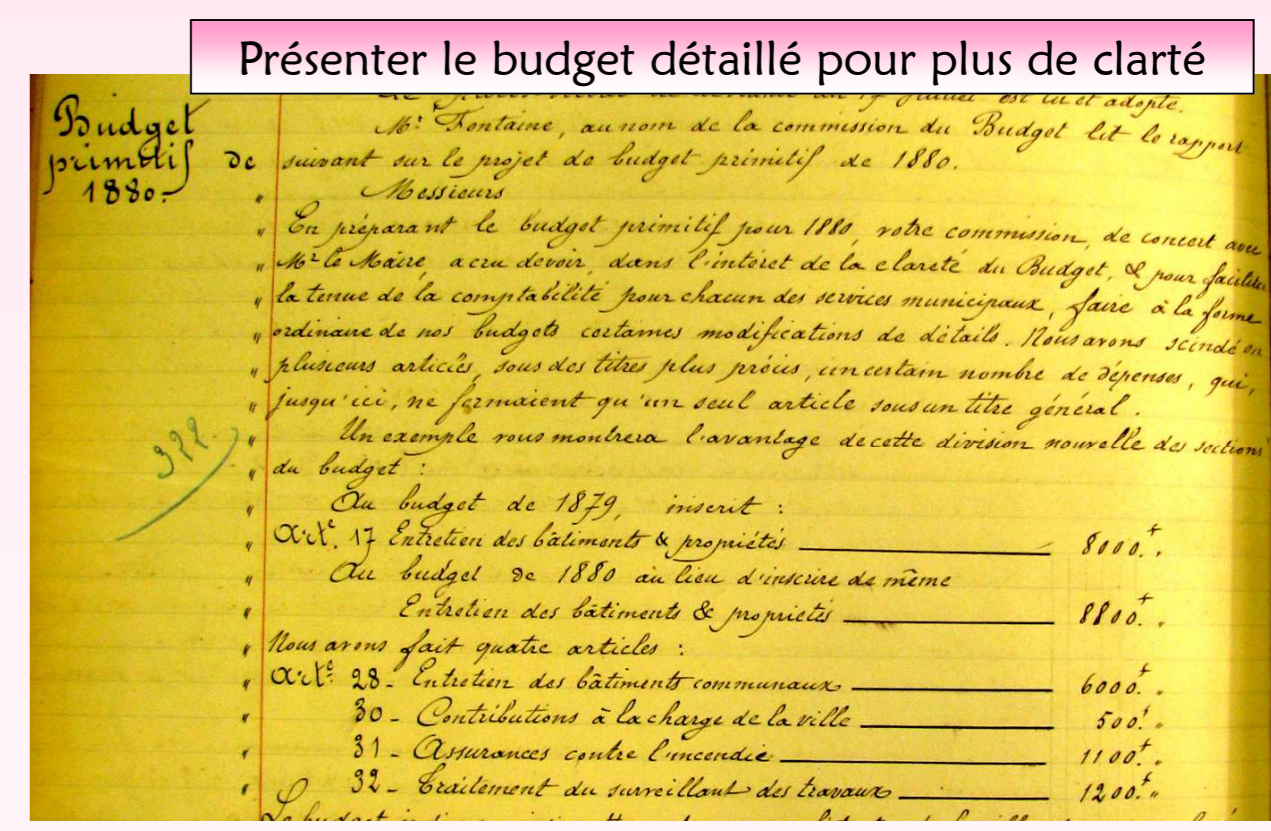 Présenter le budget détaillé pour plus de clarté
Budget
primitif de
1880.-
est lu et adopté.
Mr. Fontaine, au nom de la commission du Budget lit le rapport
suivant sur le projet de budget primitif de 1880.
" Messieurs
" En préparant le budget primitif pour 1880, votre commission, de concert avec
" Mr le Maire, a cru devoir, dans l'intéret de la clareté du Budget, & pour faciliter
" la tenue de la comptabilité pour chacun des services municipaux, faire à la forme
" ordinaire de nos budgets certaines modifications de détails. Nous avons scindé en
" plusieurs articles, sous des titres plus précis, un certain nombre de dépenses, qui,
" jusqu'ici, ne formaient qu'un seul article sous un titre général.
" Un exemple vous montrera l'avantage de cette division nouvelle des sections
322.
" du budget :
" Au budget de 1879, inscrit :
" Arte. 17 Entretien des bâtiments & propriétés 8000.f "
" Au budget de 1880 au lieu d'inscrire de même
" Entretien des bâtiments & propriétés 8800.f "
" Nous avons fait quatre articles :
" Arte. 28 - Entretien des bâtiments communaux 6000.f "
" 30 - Contributions à la charge de la ville 500.f "
" 31 - Assurances contre l'incendie 1100.f "
" 32 - Traitement du surveillant des travaux 1200.f "
Le budget